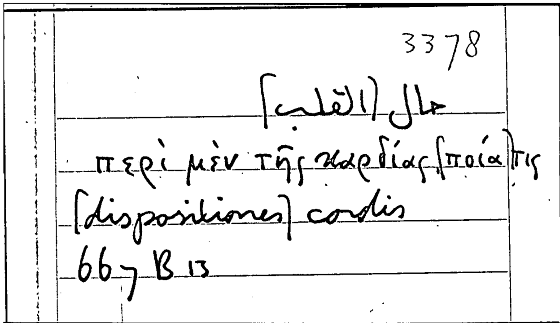 3378
حال [القلب]
περὶ μὲν τῆς καρδίας, [ποία] τις
[dispositiones] cordis
667 B 13